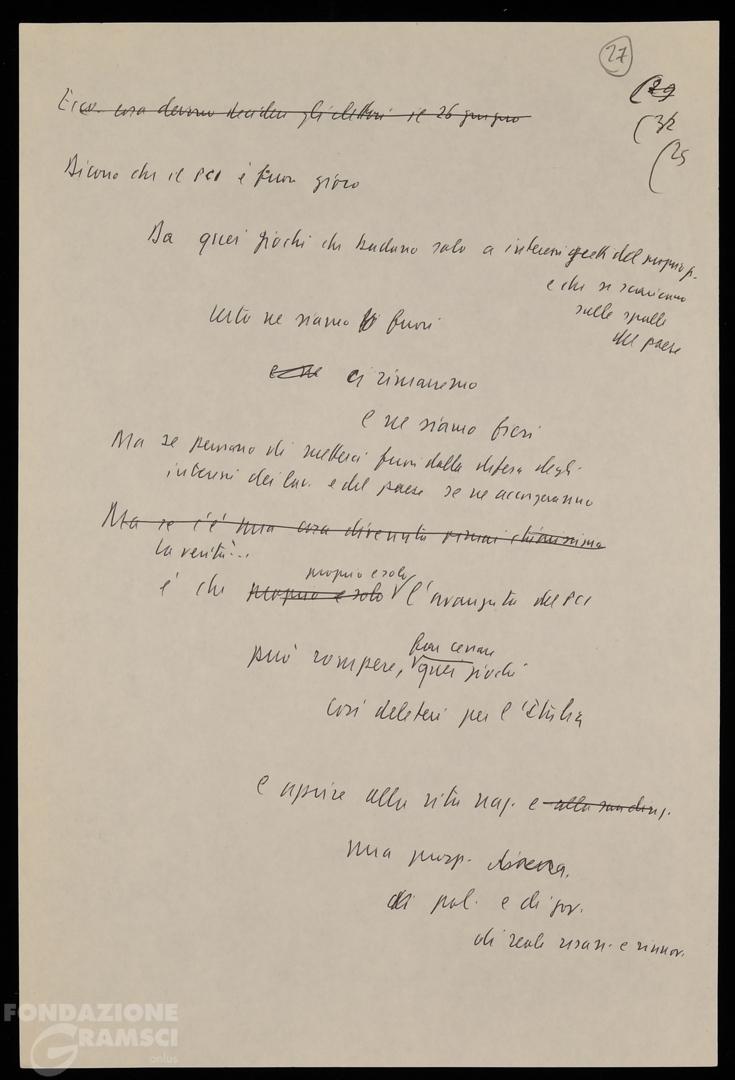 27
(29
(32
(25
Ecco cosa devono decidere gli elettori il 26 giugno
Dicono che il PCI è fuori gioco
Da quei giochi che badano solo a interessi gretti del proprio p.
e che si scaricano
sulle spalle
del paese
certo ne siamo fuori
e ne ci rimarremo
e ne siamo fieri
Ma se pensano di metterci fuori dalla difesa degli
interessi dei lav. e del paese se ne accorgeranno
Ma se c'è una cosa divenuta ormai chiarissima
La verità...
è che proprio e solo proprio e solo l'avanzata del PCI
può rompere, far cessare quei giochi
così deleteri per l'Italia
e aprire alla vita naz. e alla
una prosp. diversa.
di pol. e di gov.
di reale risan. e rinnov.
FONDAZIONE
GRAMSCI
onlus